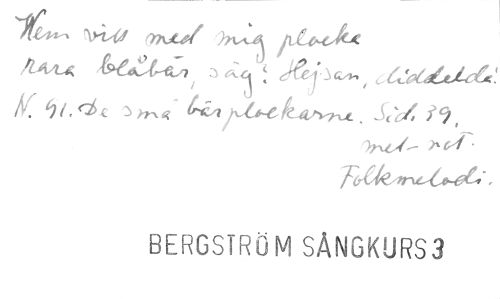 Hem vill med mig plocka
rara blåbär, säg? Hejsan, diddeldå!
N. 91. De små bärplockarne. Sid. 39.
mel-rot.
Folkmelodi.
BERGSTRÖM SÅNGKURS 3